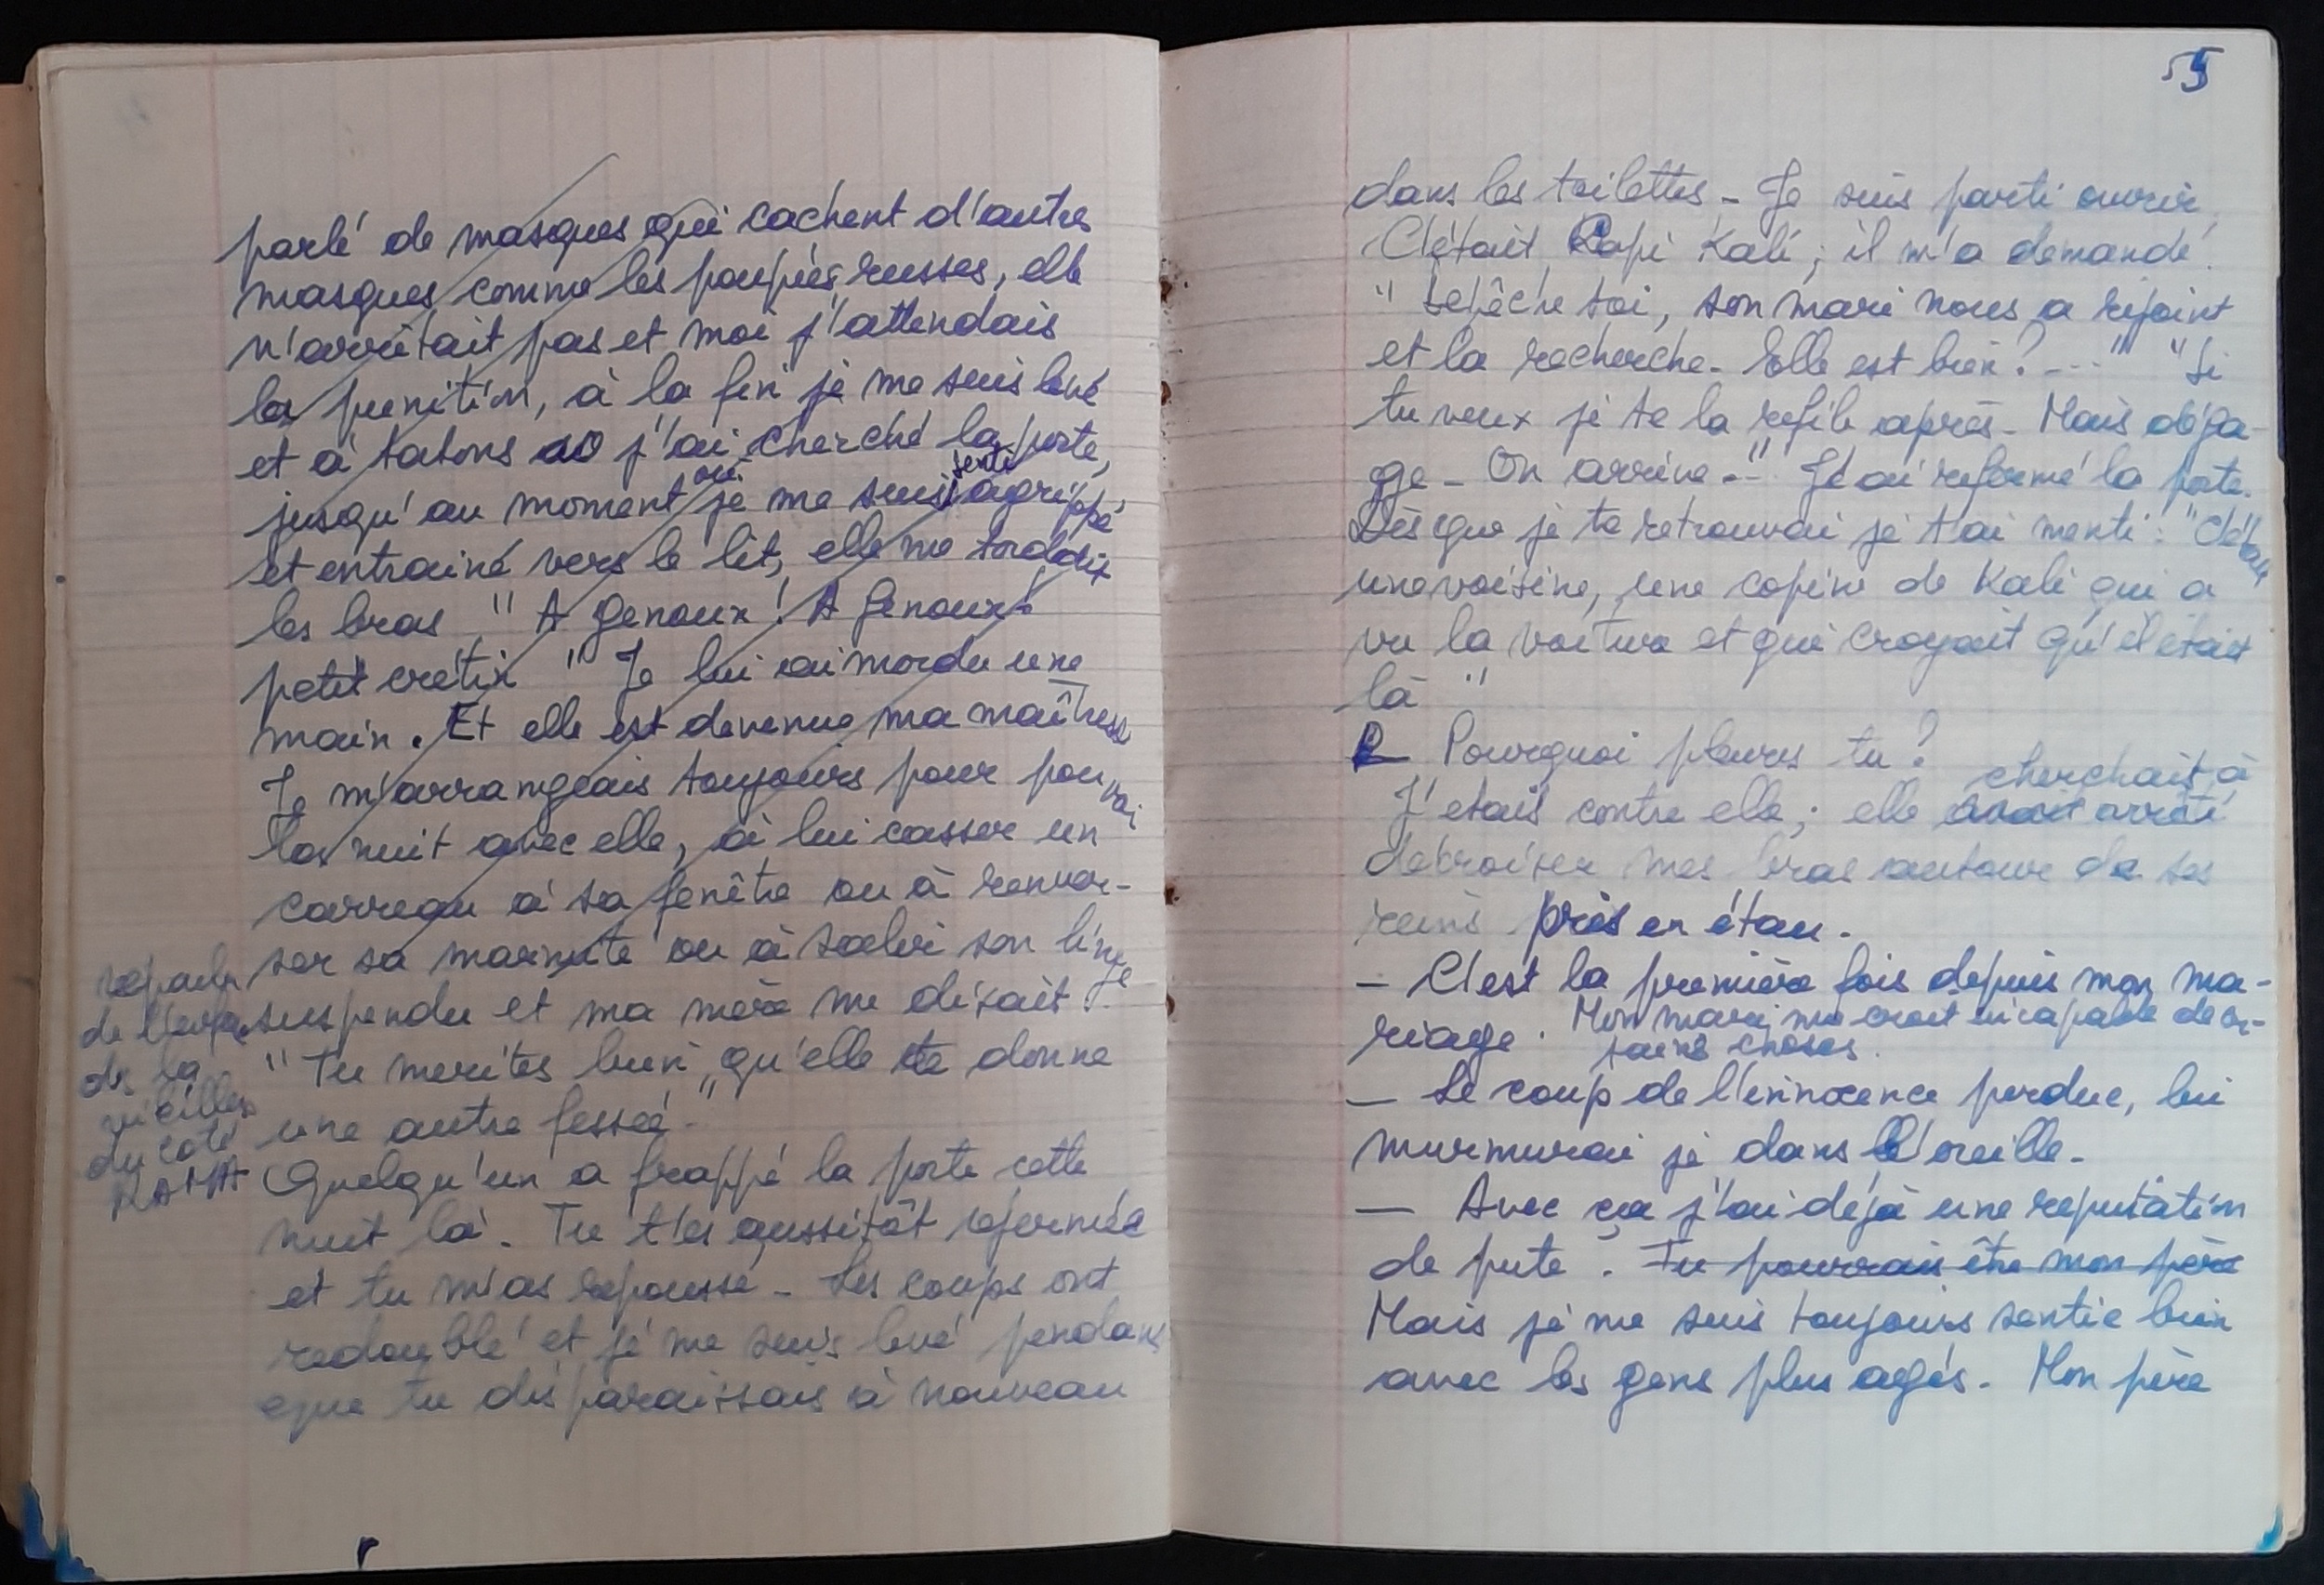 parlé de masques qui cachent d'autres
masques comme les poupées russes, elle
n'arrêtait pas et moi j'attendais
la punition, à la fin je me suis levé
et à tatons j'ai cherché la porte,
jusqu'au moment où je me suis senti agrippé
et entrainé vers le lit, elle me tordait
les bras " A genoux ! A genoux !
petit crétin " Je lui ai mordu une
main. Et elle est devenue ma maîtresse
Je m'arrangeais toujours pour pouvoir
la nuit avec elle, à lui casser un
carreau à sa fenêtre ou à renver-
ser sa marmite ou à salir son linge
suspendu et ma mère me disait :
" Tu merites bien qu'elle te donne
une autre fessée "
Quelqu'un a frappé la porte cette
nuit là. Tu t'es aussitôt refermée
et tu m'as repoussé - Les coups ont
redoublé et je me suis levé pendant
que tu disparaissais à nouveau
de la
vieille
du coté
RAMA
55
dans les toilettes - Je suis parti ouvrir
C'était Kali ; il m'a demandé.
" Depêche toi, son mari nous a rejoint
et la recherche - Elle est bien ? --- " " Si
tu veux je te la refile après - Mais déga-
ge - On arrive -- " J'ai refermé la porte.
Dès que je te retrouvai je t'ai menti : " C'était
une voisine, une copine de Kali qui a
vu la voiture et qui croyait qu'il était
là "
— Pourquoi pleures tu ?
cherchait à
J'etais contre elle ; elle avait arrêté
décroiser mes bras autour de ses
reins pris en étau.
— C'est la première fois depuis mon ma-
riage. Mon mari me croit incapable de cer-
taines choses.
— Le coup de l'innocence perdue, lui
murmurai je dans l'oreille.
— Avec ça j'ai déjà une reputation
de pute. Tu pourrais être mon père
Mais je me suis toujours sentie bien
avec les gens plus agés. Mon père